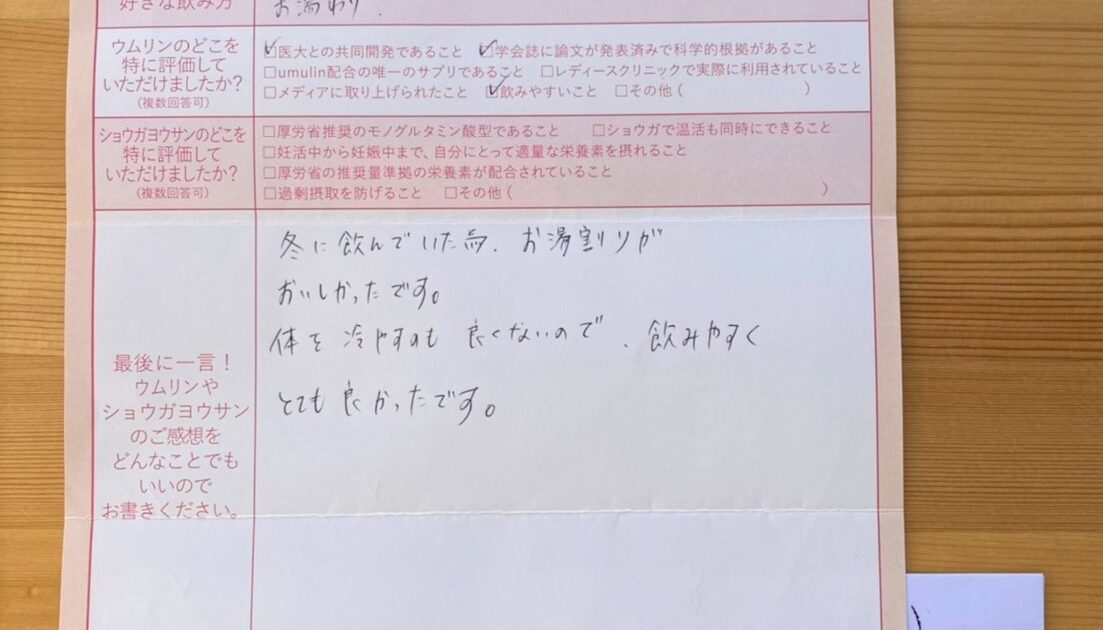 好きな飲み方
お湯わり.
ウムリンのどこを
特に評価して
いただけましたか?
(複数回答可)
☑医大との共同開発であること ☑学会誌に論文が発表済みで科学的根拠があること
□umulin配合の唯一のサプリであること □レディースクリニックで実際に利用されていること
□メディアに取り上げられたこと ☑飲みやすいこと □その他( )
ショウガヨウサンのどこを
特に評価して
いただけましたか?
(複数回答可)
□厚労省推奨のモノグルタミン酸型であること □ショウガで温活も同時にできること
□妊活中から妊娠中まで、自分にとって適量な栄養素を摂れること
□厚労省の推奨量準拠の栄養素が配合されていること
□過剰摂取を防げること □その他( )
最後に一言!
ウムリンや
ショウガヨウサン
のご感想を
どんなことでも
いいので
お書きください。
冬に飲んでいた為、お湯割りが
おいしかったです。
体を冷やすのも良くないので、飲みやすく
とても良かったです。